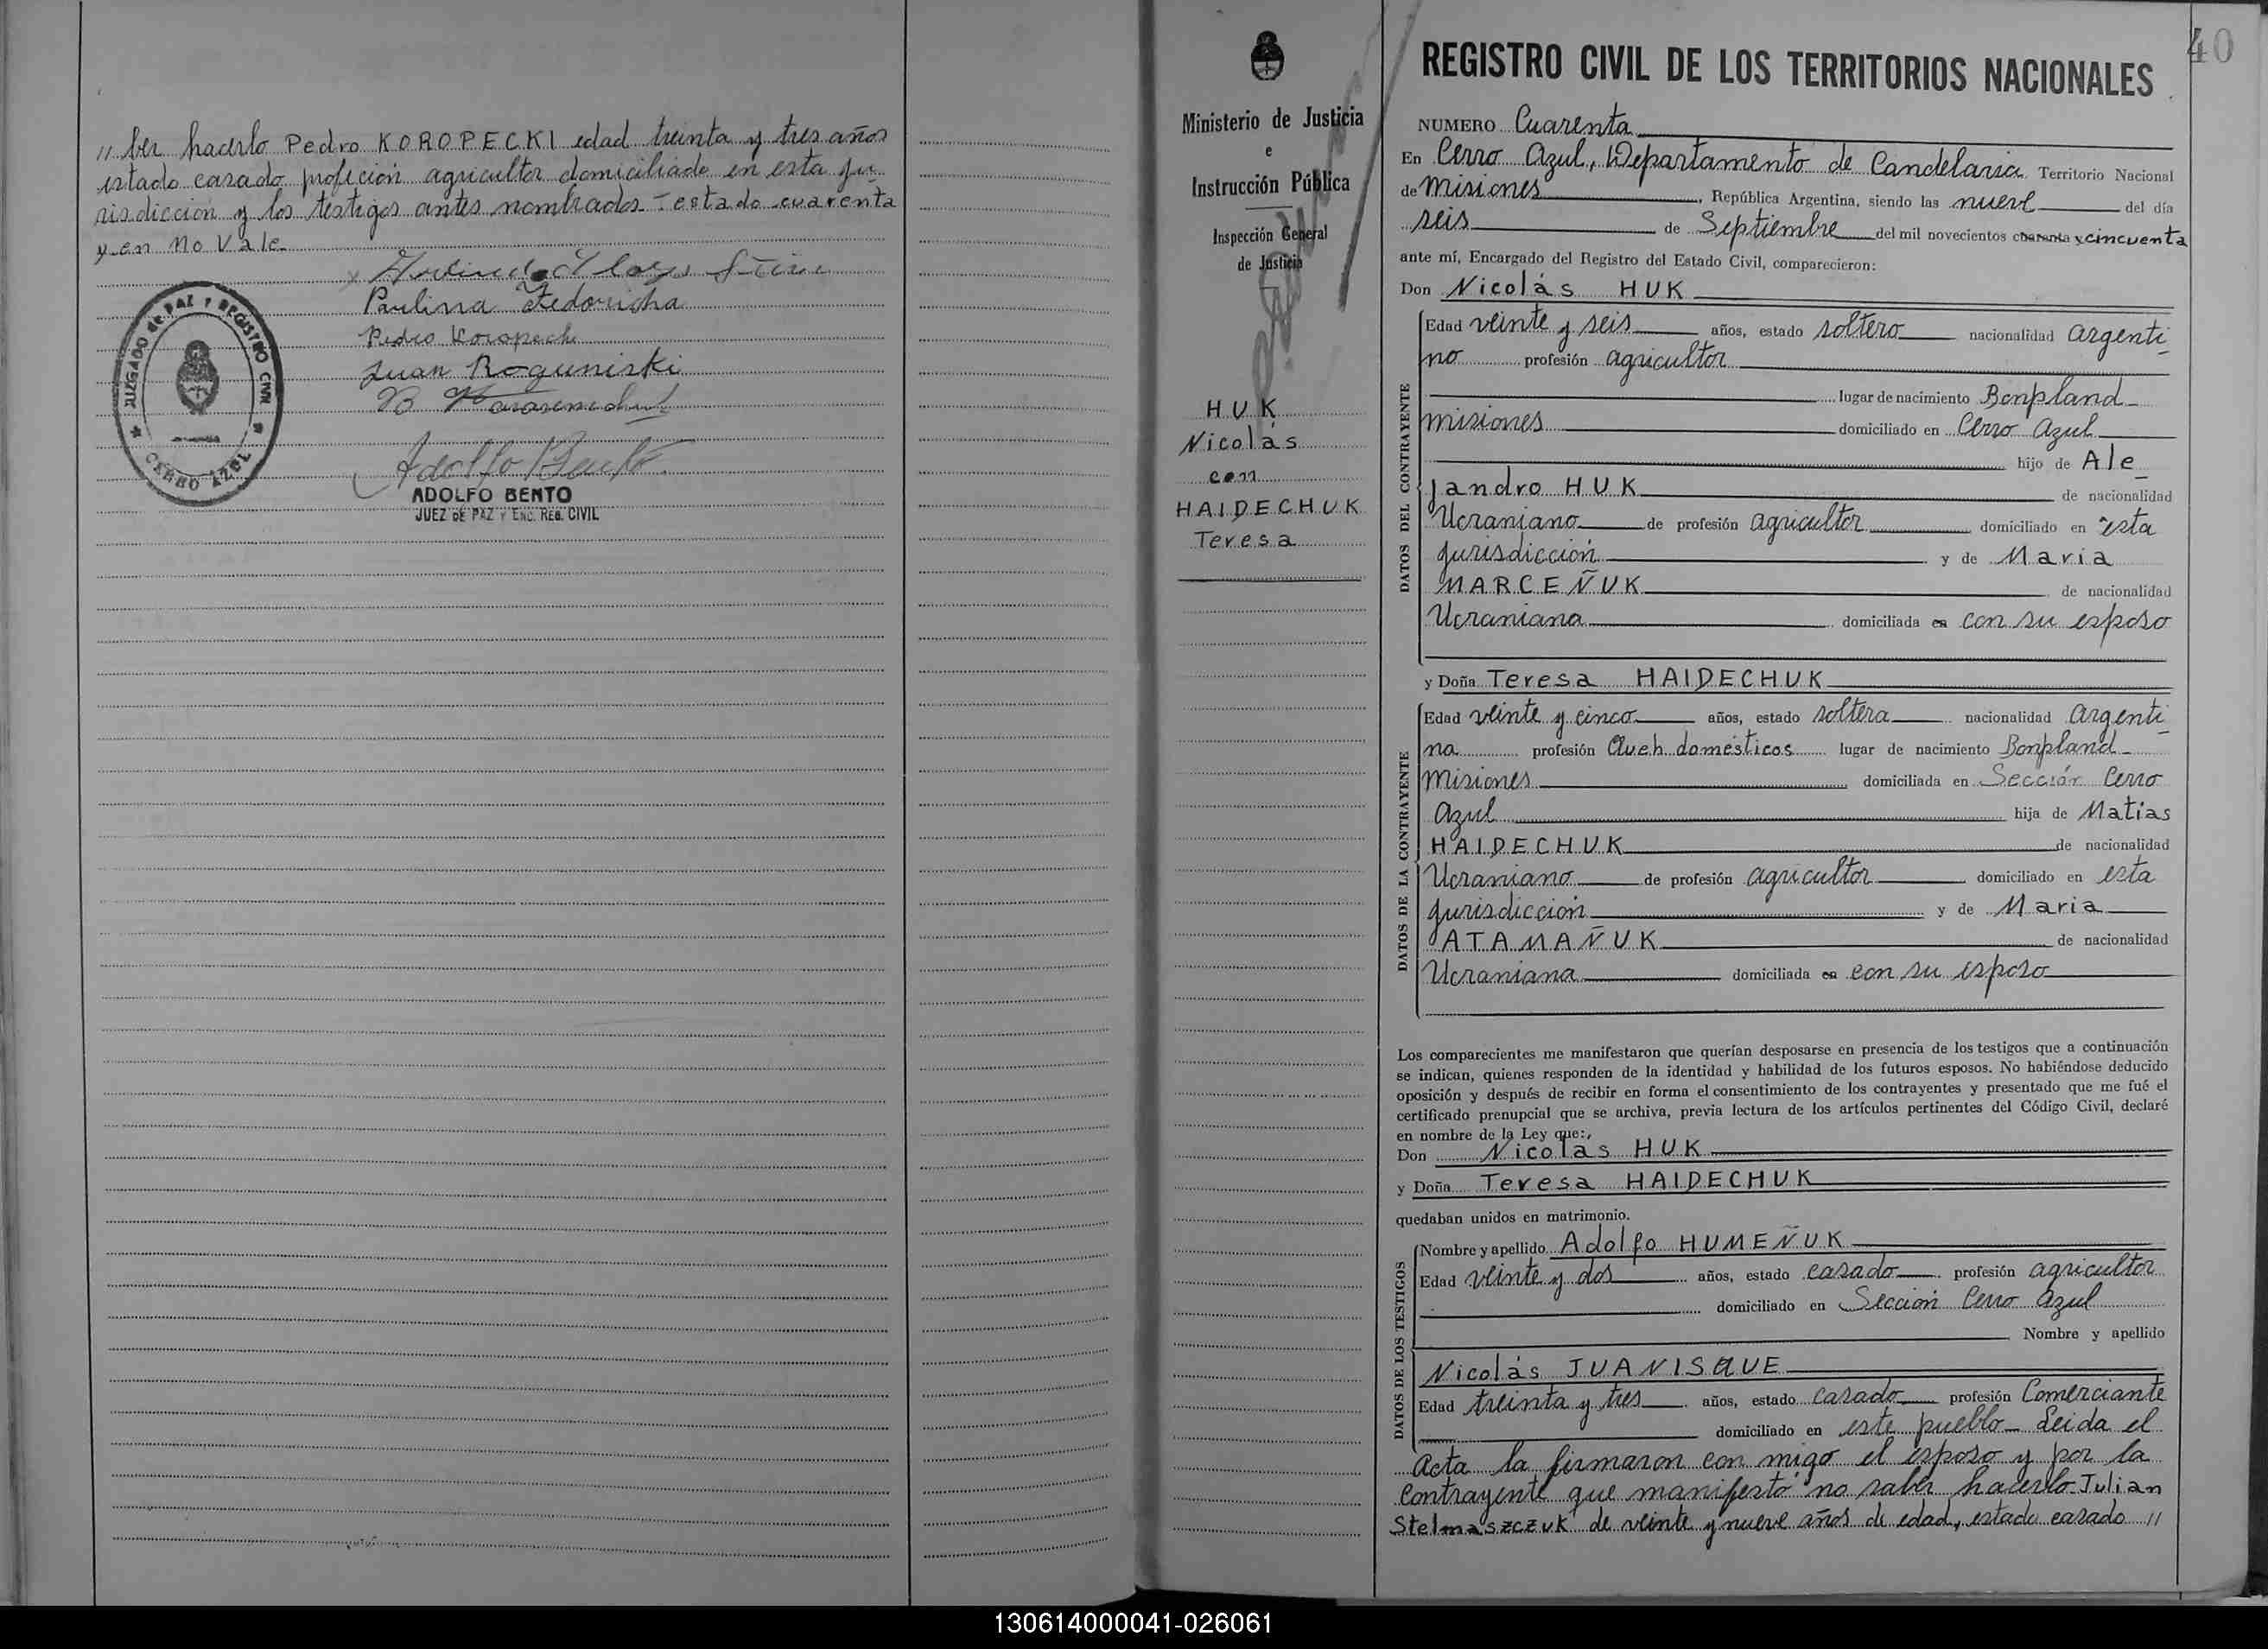 // ber hacerlo Pedro KOROPECKI edad treinta y tres años
estado casado profeción agricultor domiciliado en esta ju_
risdicción y los testigos antes nombrados - estado cuarenta
y en No Vale
Paulina Fedoricha
Pedro Koropecki
Juan Roguniski
Adolfo Bento
ADOLFO BENTO
JUEZ DE PAZ Y ENC. REG. CIVIL
JUZGADO DE PAZ Y REGISTRO CIVIL
CERRO AZUL
Ministerio de Justicia
e
Instrucción Pública
Inspección General
de Justicia
HUK
Nicolás
con
HAIDECHUK
Teresa
40
REGISTRO CIVIL DE LOS TERRITORIOS NACIONALES
NUMERO Cuarenta
En Cerro Azul, Departamento de Candelaria Territorio Nacional
de Misiones, República Argentina, siendo las nueve del día
seis de Septiembre del mil novecientos cuarenta y cincuenta
ante mí, Encargado del Registro del Estado Civil, comparecieron:
Don Nicolás HUK
DATOS DEL CONTRAYENTE
Edad veinte y seis años, estado soltero nacionalidad argenti_
no profesión agricultor
lugar de nacimiento Bonpland_
misiones domiciliado en Cerro Azul
hijo de Ale_
jandro HUK de nacionalidad
Ucraniano de profesión agricultor domiciliado en esta
jurisdicción y de Maria
MARCEÑUK de nacionalidad
Ucraniana domiciliada en con su esposo
y Doña Teresa HAIDECHUK
DATOS DE LA CONTRAYENTE
Edad veinte y cinco años, estado soltera nacionalidad argenti_
na profesión Queh. domésticos lugar de nacimiento Bonpland_
misiones domiciliada en Sección Cerro
Azul hija de Matias
HAIDECHUK de nacionalidad
Ucraniano de profesión agricultor domiciliado en esta
jurisdicción y de Maria
ATAMAÑUK de nacionalidad
Ucraniana domiciliada en con su esposo
Los comparecientes me manifestaron que querían desposarse en presencia de los testigos que a continuación
se indican, quienes responden de la identidad y habilidad de los futuros esposos. No habiéndose deducido
oposición y después de recibir en forma el consentimiento de los contrayentes y presentado que me fué el
certificado prenupcial que se archiva, previa lectura de los artículos pertinentes del Código Civil, declaré
en nombre de la Ley que:,
Don Nicolás HUK
y Doña Teresa HAIDECHUK
quedaban unidos en matrimonio.
DATOS DE LOS TESTIGOS
Nombre y apellido Adolfo HUMEÑUK
Edad veinte y dos años, estado casado profesión agricultor
domiciliado en Sección Cerro Azul
Nombre y apellido
Nicolás JUANISQUE
Edad treinta y tres años, estado casado profesión Comerciante
domiciliado en este pueblo_ Leida el
Acta la firmaron con migo el esposo y por la
Contrayente que manifestó no saber hacerlo Julian
Stelmaszczuk de veinte y nueve años de edad, estado casado //
130614000041-026061